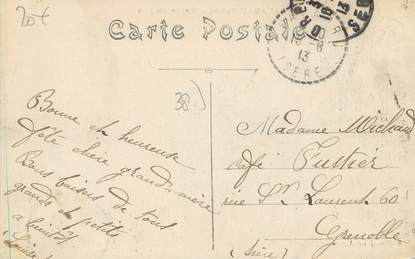 20€
Carte Postale
13-8
13
ISERE
38)
Bonne et heureuse
fête chère grand-mère
Bons baisers de tous
grands et petits
a
Louise
Madame Michaud
Café Tuttier
rue St Laurent 60
Grenoble
(Isère)